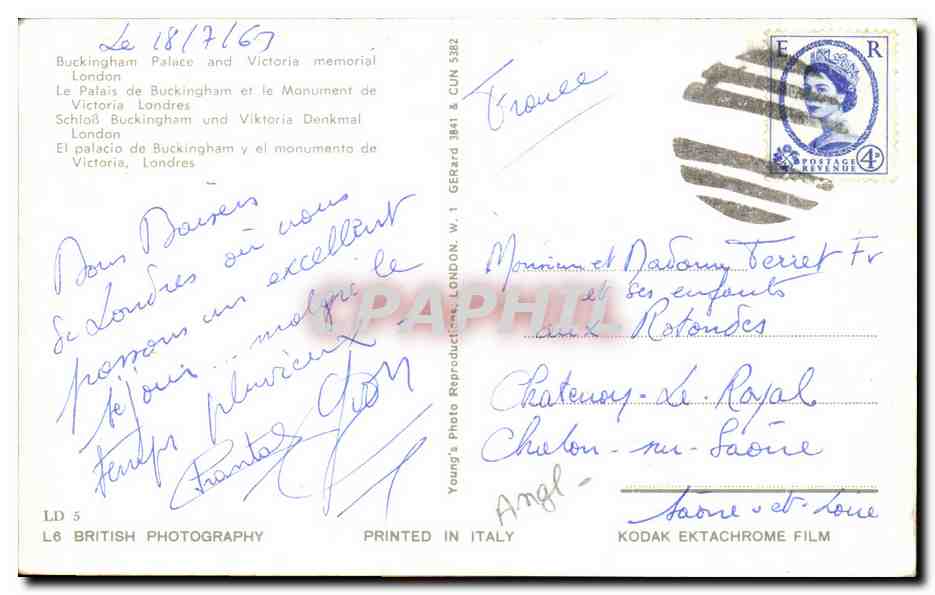 Le 18/7/63
Buckingham Palace and Victoria memorial
London
Le Palais de Buckingham et le Monument de
Victoria Londres
Schloß Buckingham und Viktoria Denkmal
London
El palacio de Buckingham y el monumento de
Victoria, Londres
Bons Baisers
de Londres où nous
passons un excellent
séjour... malgré le
temps pluvieux
Chantal
LD 5
L6 BRITISH PHOTOGRAPHY
PRINTED IN ITALY
KODAK EKTACHROME FILM
Young's Photo Reproductions, LONDON. W. 1 GERrard 3841 & CUN 5382
France
E R
POSTAGE
REVENUE
4D
Monsieur et Madame Terret Fr
et ses enfants
aux Rotondes
Chatenoy-Le-Royal
Chalon-sur-Saône
Saône-et-Loire
Angl-
CPAPHIL